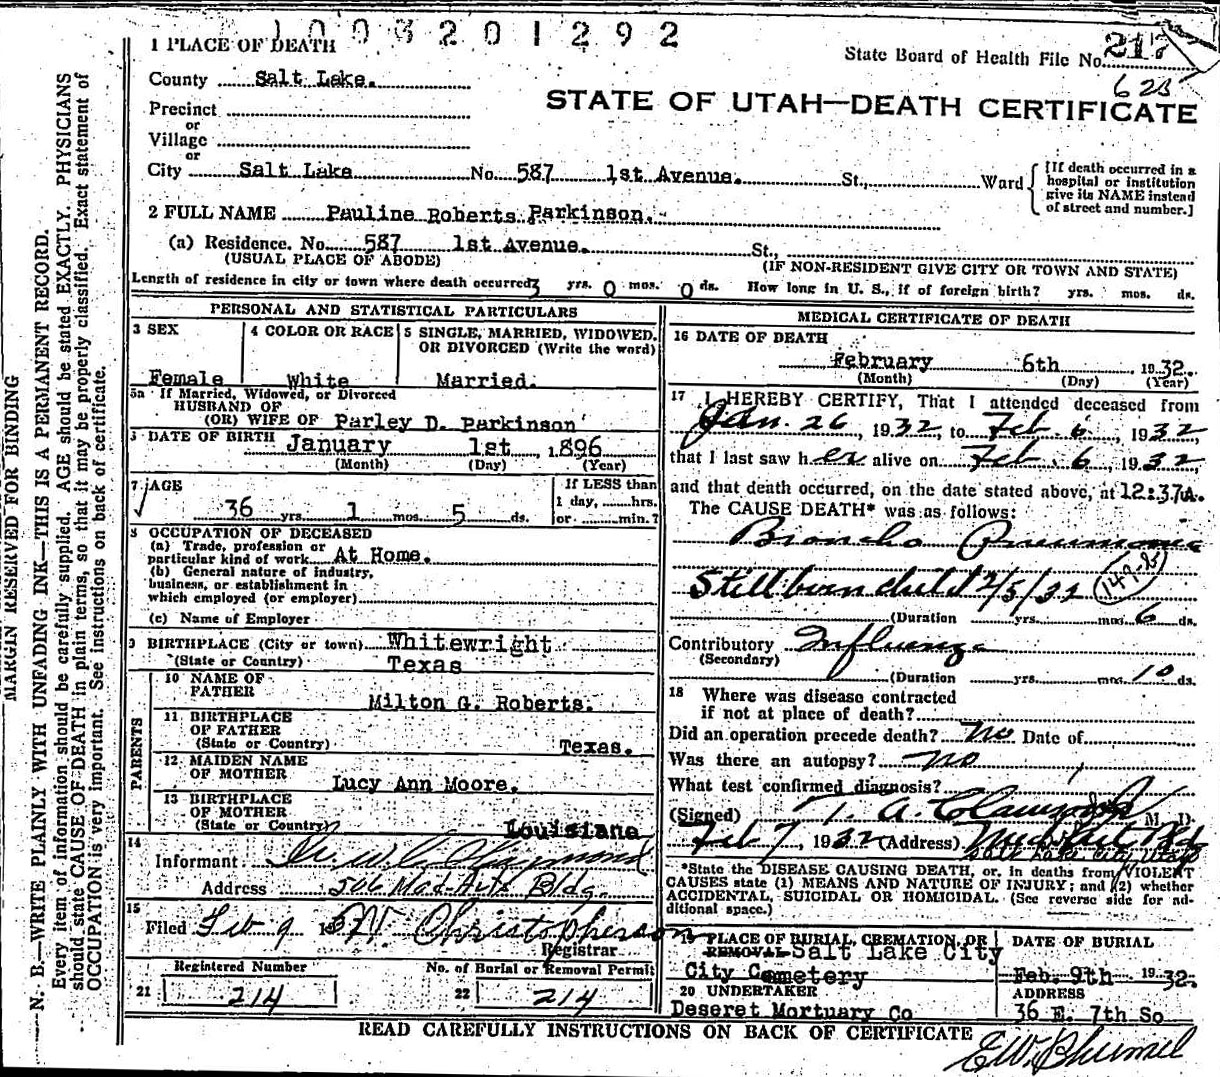 1003201292
1 PLACE OF DEATH
State Board of Health File No. 217
623
County Salt Lake.
STATE OF UTAH—DEATH CERTIFICATE
Precinct
or
Village
or
City Salt Lake No. 587 1st Avenue. St., Ward
[If death occurred in a hospital or institution give its NAME instead of street and number.]
2 FULL NAME Pauline Roberts Parkinson.
(a) Residence. No. 587 1st Avenue. St.,
(USUAL PLACE OF ABODE) (IF NON-RESIDENT GIVE CITY OR TOWN AND STATE)
Length of residence in city or town where death occurred 3 yrs. 0 mos. 0 ds. How long in U. S., if of foreign birth? yrs. mos. ds.
PERSONAL AND STATISTICAL PARTICULARS
3 SEX
Female
4 COLOR OR RACE
White
5 SINGLE, MARRIED, WIDOWED, OR DIVORCED (Write the word)
Married.
5a If Married, Widowed, or Divorced
HUSBAND OF
(OR) WIFE OF Parley D. Parkinson
DATE OF BIRTH January 1st, 1896
(Month) (Day) (Year)
7 AGE
36 yrs. 1 mos. 5 ds.
If LESS than
1 day, hrs.
or min.?
8 OCCUPATION OF DECEASED
(a) Trade, profession or
particular kind of work At Home.
(b) General nature of industry,
business, or establishment in
which employed (or employer)
(c) Name of Employer
9 BIRTHPLACE (City or town) Whitewright
(State or Country) Texas
PARENTS
10 NAME OF
FATHER
Milton G. Roberts.
11 BIRTHPLACE
OF FATHER
(State or Country) Texas.
12 MAIDEN NAME
OF MOTHER
Lucy Ann Moore.
13 BIRTHPLACE
OF MOTHER
(State or Country) Louisiana
14
Informant
Address 506 Med Arts Bldg.
15
Filed Feb 9 Christopherson
Registrar
Registered Number
21 214
No. of Burial or Removal Permit
22 214
MEDICAL CERTIFICATE OF DEATH
16 DATE OF DEATH
February 6th 1932.
(Month) (Day) (Year)
17 I HEREBY CERTIFY, That I attended deceased from
Jan. 26, 1932, to Feb. 6, 1932
that I last saw her alive on Feb. 6, 1932
and that death occurred, on the date stated above, at 12:37A.
The CAUSE DEATH* was as follows:
Broncho Pneumonia
Still born child 2/5/32
(Duration yrs. mos. 6 ds.
Contributory Influenza
(Secondary)
(Duration yrs. mos. 10 ds.
18 Where was disease contracted
if not at place of death?
Did an operation precede death? No Date of
Was there an autopsy? no
What test confirmed diagnosis?
(Signed) T. A. M. D.
Feb 7, 1932 (Address)
Salt Lake City Utah
*State the DISEASE CAUSING DEATH, or, in deaths from VIOLENT
CAUSES state (1) MEANS AND NATURE OF INJURY; and (2) whether
ACCIDENTAL, SUICIDAL OR HOMICIDAL. (See reverse side for ad-
ditional space.)
19 PLACE OF BURIAL, CREMATION, OR
REMOVAL Salt Lake City
City Cemetery
DATE OF BURIAL
Feb. 9th 1932.
20 UNDERTAKER
Deseret Mortuary Co
ADDRESS
36 E. 7th So
READ CAREFULLY INSTRUCTIONS ON BACK OF CERTIFICATE
MARGIN RESERVED FOR BINDING
N. B.—WRITE PLAINLY WITH UNFADING INK—THIS IS A PERMANENT RECORD.
Every item of information should be carefully supplied. AGE should be stated EXACTLY. PHYSICIANS
should state CAUSE OF DEATH in plain terms, so that it may be properly classified. Exact statement of
OCCUPATION is very important. See instructions on back of certificate.